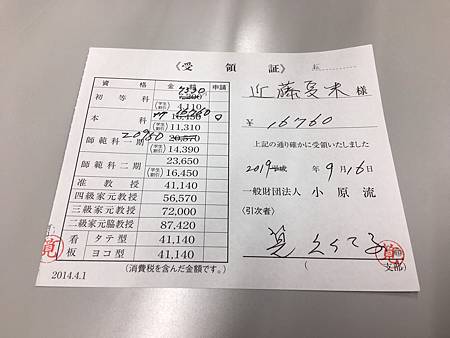 《受領証》
資格 金 申請
初等科 7330
(学生割引) 4,110
本科 16760 ○
(学生割引) 11,310
師範科一期 20950 20,570
(学生割引) 14,390
師範科二期 23,650
(学生割引) 16,450
准教授 41,140
四級家元教授 56,570
三級家元教授 72,000
二級家元脇教授 87,420
看板 タテ型 41,140
ヨコ型 41,140
2014.4.1 (消費税を含んだ金額です。)
近藤夏来 様
¥16760
上記の通り確かに受領いたしました
2019 年 9月16日
一般財団法人 小原流
〈引次者〉
筧
( 支部)